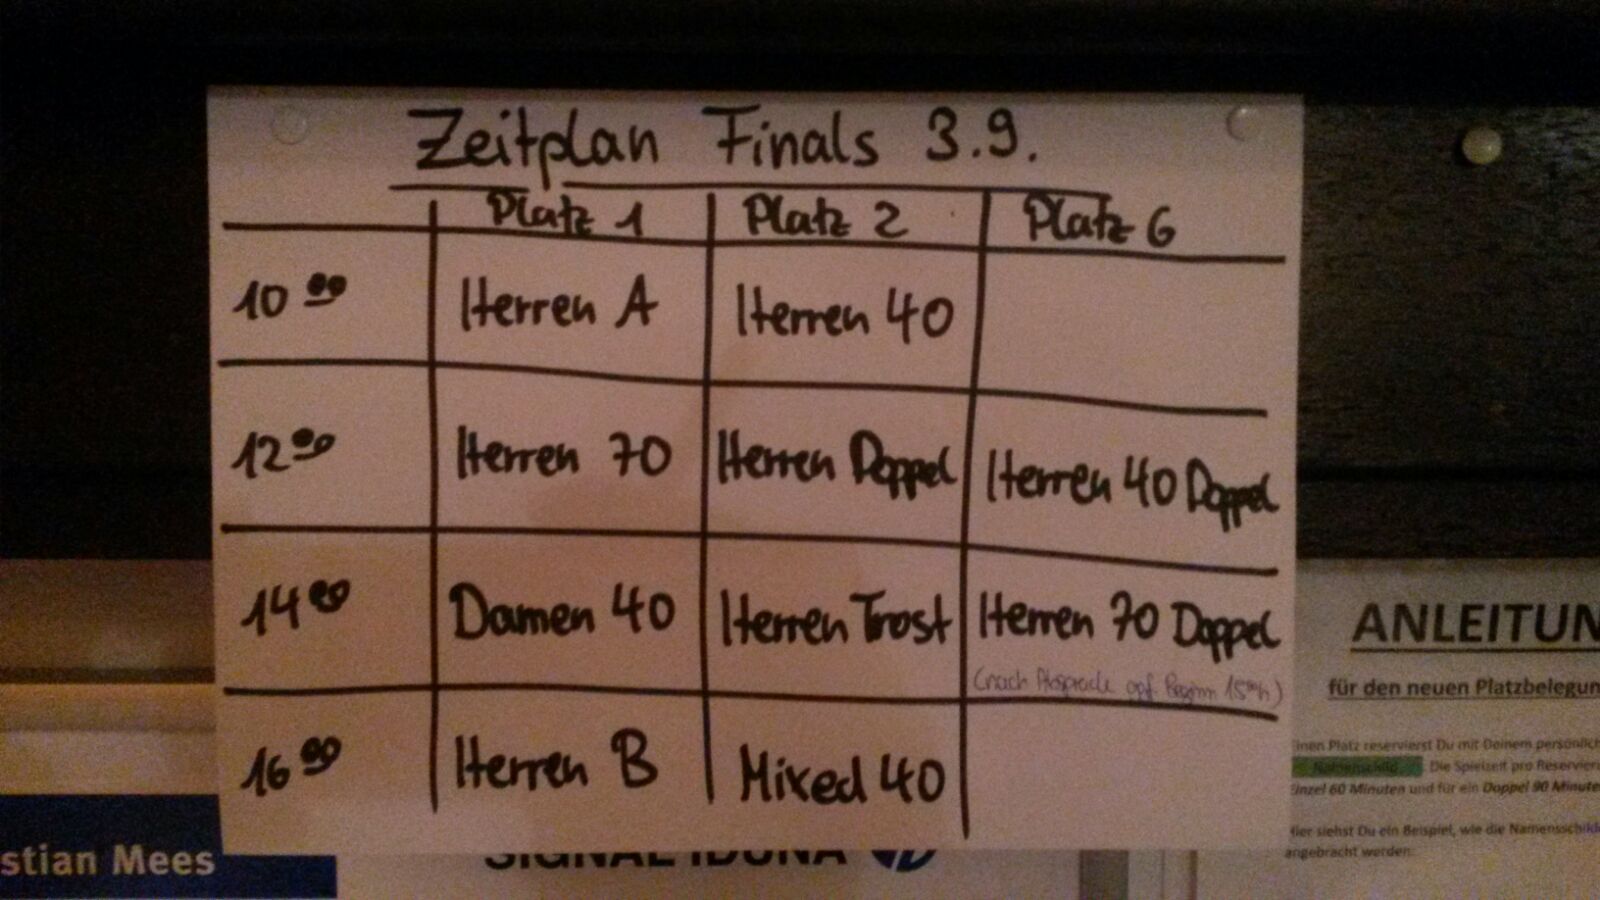 Zeitplan Finals 3.9.
Platz 1 Platz 2 Platz 6
10 00 Herren A Herren 40
12 00 Herren 70 Herren Doppel Herren 40 Doppel
14 00 Damen 40 Herren Trost Herren 70 Doppel
(nach Absprache ggf. Beginn 15 00 h)
16 00 Herren B Mixed 40
stian Mees
SIGNAL IDUNA
ANLEITUN
für den neuen Platzbelegun
inen Platz reservierst Du mit Deinem persönlich
Namenschild Die Spielzeit pro Reservier
Einzel 60 Minuten und für ein Doppel 90 Minute
Hier siehst Du ein Beispiel, wie die Namensschild
angebracht werden: